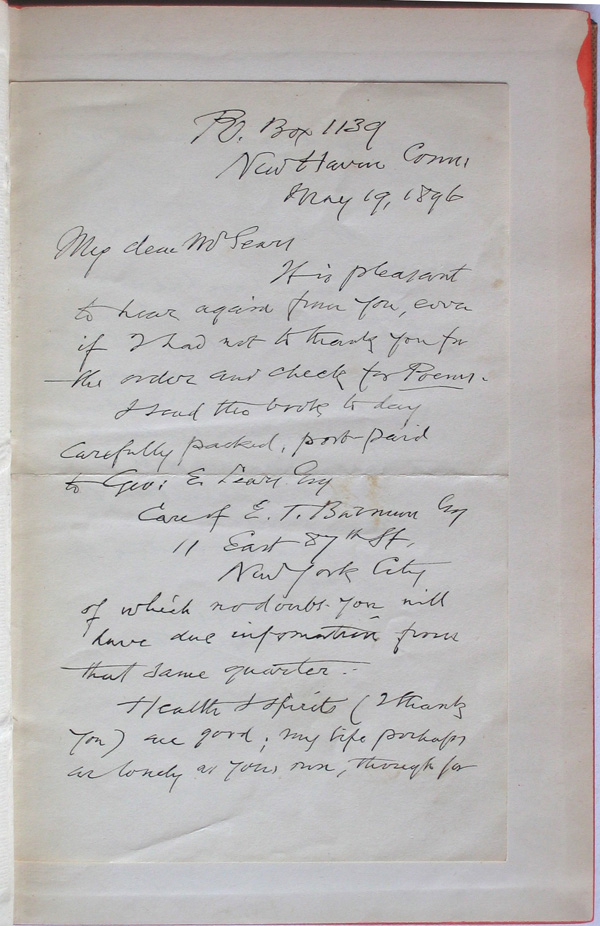 P.O. Box 1139
New Haven Conn:
May 19, 1896
My dear Mr Sears
It is pleasant
to hear again from you, even
if I had not to thank you for
the order and check for Poems.
I send the book to day
carefully packed, post-paid
to Geo: E. Sears Esq
Care of E. T. Barnum Esq
11 East 87th St,
New York City
of which no doubt you will
have due information from
that same quarter:-
Health & spirits (I thank
you) are good; my life perhaps
as lonely as your own, though for